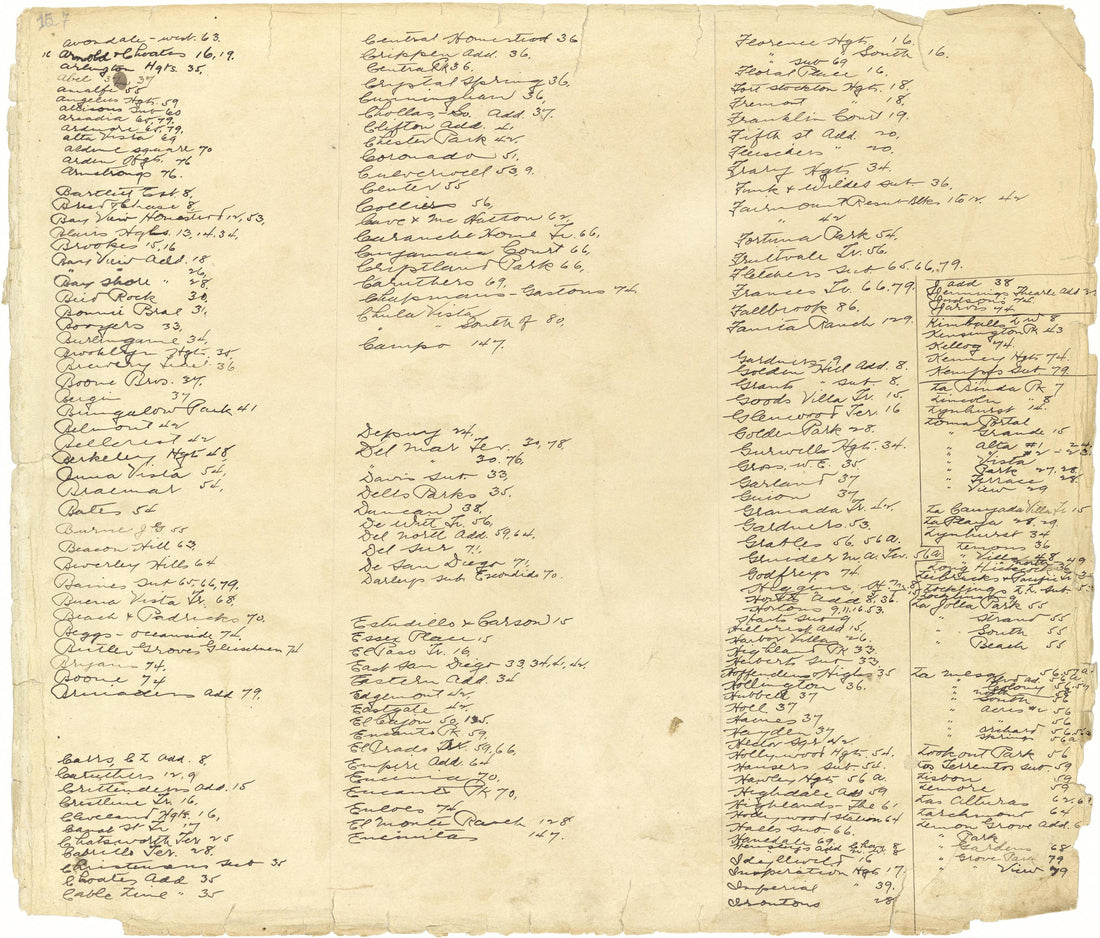 157
Avondale - west. 63.
16 Arnold & Choates 16, 19.
Arlington Hgts. 35,
Abel 37
Amalfi 55
Angelus Hgts. 59
Addisons Sub 60
Arcadia 65, 79.
Ardmore 65, 79,
Alta Vista 69
Aldine Square 70
Arden Hgts. 76
Armstrongs 76.
Bartlett Est 8,
Breed & Chase 8,
Bay View Homestead 12, 53,
Blairs Hgts. 13, 14, 34,
Brookes 15, 16
Bay View Add. 18
" " 26,
Bay Shore " 28,
Bird Rock 30,
Bonnie Brae 31,
Boozers 33,
Burlingame 34,
Brooklyn Hgts. 35,
Brewery Tract 36
Boone Bros. 37.
Bergin 37
Bungalow Park 41
Belmont 42
Bellcrest 42
Berkeley Hgts 48
Buna Vista 54,
Braemar 54,
Bates 54
Burne J G 55
Beacon Hill 63,
Beverley Hills 64
Baines Sub 65, 66, 79,
Buena Vista Tr. 68,
Beach & Padricks 70,
Beggs - Oceanside 74,
Butler Groves 74
Bryans 74,
Boone 74
Add 79.
Carrs, C L Add. 8,
Caruthers 12, 9
Crittendens Add. 15
Crestline Tr. 16,
Cleveland Hgts. 16,
Canal St Tr 17
Chatsworth Ter 25
Cabrillo Ter. 28,
Christemans Sub 35
Choates Add 35
Cable Line " 35
Central Homestead 36
Crippen Add. 36,
Central Pk 36.
Crystal Spring 36,
Cunningham 36,
Chollas - So. Add. 37.
Clifton Add. 41
Chester Park 42,
Coronado 51,
Culverwell 53, 9.
Center 55
Colliers 56,
Cave & Mc Hatton 62,
Caranche Home Tr. 66,
Cuyamaca Court 66,
Criptland Park 66,
Caruthers 69,
Chapmans - Gastons 74
Chula Vista
" " South of 80,
Campo 147.
Depuny 24,
Del Mar Ter. 30, 78
" " 30, 76,
Davis Sub 33,
Dells Parks 35,
Duncan 38,
De Witt Tr. 56,
Del North Add. 59, 64,
Del Sur 71,
De San Diego 71,
Darleys Sub Escondido 70.
Estudillo & Carson 15
Essex Place 15
El Paso Tr. 16,
East San Diego 33, 34, 41, 42,
Eastern Add. 34
Edgemont 42,
Eastgate 42,
El Cajon 50, 125,
Encanto Pk 59,
El Prado Tr. 59, 66,
Empire Add 64
Encinia 70,
Encanto Pk 70,
Enloes 74
El Monte Ranch 128
Encinitas 147.
Florence Hgts 16.
" " South 16.
" Sub 69
Floral Place 16.
Fort Stockton Hgts. 18,
Fremont " 18,
Franklin Court 19.
Fifth St Add. 20,
Fleischers " 20,
Frary Hgts 34.
Funk & Wildes Sub 36,
Fairmount Resub Blks 16 12 42
" 42
Fortuna Park 54.
Fruitvale Tr. 56.
Fletchers Sub 65, 66, 79.
Frances Tr. 66, 79.
Fallbrook 86.
Fanita Ranch 129.
Gardners 9
Golden Hill Add. 8.
Grants " Sub 8,
Goods Villa Tr. 15
Glenwood Ter. 16
Golden Park 28.
Gurwells Hgts. 34.
Gross, W. E. 35
Garland 37
Guion 37
Granada Tr. 42,
Gardners 53.
Grables 56, 56 A.
Grinder M A. Ter. 56 A.
Godfreys 74
Higgins
Horton Add 8, 36.
Hortons 9, 11, 16, 53.
Harts Sub 9
Hillcrest Add 15.
Harbor Villas 26.
Highland Pk 33
Herberts Sub 33
Hoffendens Highs 35
Hollington 36.
Hubbell 37
Holl 37
Haines 37
Hayden 37
Hector Spr 42
Hollywood Hgts. 54.
Hansers Sub 54.
Hawley Hgts 56 A.
Highdale Add 59
Highlands - The 61
Hollywood Station 64
Halls Sub 66.
Hansdale 69
Hennings Add
Idyllwild 16
Inspiration Hgts 17.
Imperial " 39.
Irontons 28
J Add 38
Jennings Thearle Add
Judsons 74
Jarvis 74
Kimballs L W 8
Kensington Pk 43
Kellog 74.
Kenney Hgts 74.
Kempfs Sub 79.
La Binda Pk 7
Lincoln " 8
Lynhurst 14.
Loma Portal
" Grande 15
" Alta #1 - 24.
" " #2 - 23
" Vista
" Park 27, 28,
" Terrace 28
" View 29
La Canyada Villa Tr 15
La Playa 28, 29.
Lynhurst 34
Lemons 36
" Villas 48
Long 36 49
La Jolla Park 55
" Strand 55
" South 55
" Beach 55
La Mesa 56, 57 A
" Colony 56, 57
" South 56
" Acres #2 56
" " 56
" Orchard 56, 56 A
" Springs 56 A
Lookout Park 56
Los Terrentos Sub. 59
Lisbon 59
Lenore 59
Las Alturas 62, 63
Larchmont 64
Lemon Grove Add. 6
" Park
" Gardens 68
" Grove Park 79
" " View 79